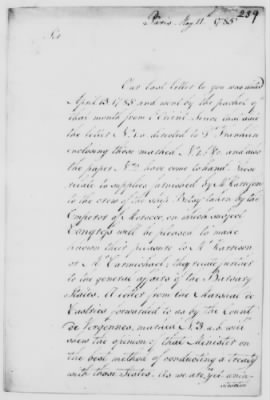 239
Paris May 11. 1785
Sir
Our last letter to you was dated
April 13. 1785 and went by the packet of
that month from Port Since that date
the letter No. directed to Dr. Franklin
enclosing those marked No. and also
the paper No. have come to hand. These
relate to supplies advanced by Mr. Harrison
to the crew of the ship Betsy taken by the
Emperor of Morocco, on which subject
Congress will be pleased to make
known their pleasure to Mr. Harrison
or Mr. Carmichael, they relate, further
to the general affairs of the Barbary
States. A letter from the Marshal de
Castries forwarded to us by the Count
de Vergennes, marked N. 3. a. b. will
shew the opinion of that Minister on
the best method of conducting a treaty
with those States. As we are yet unin-
structed